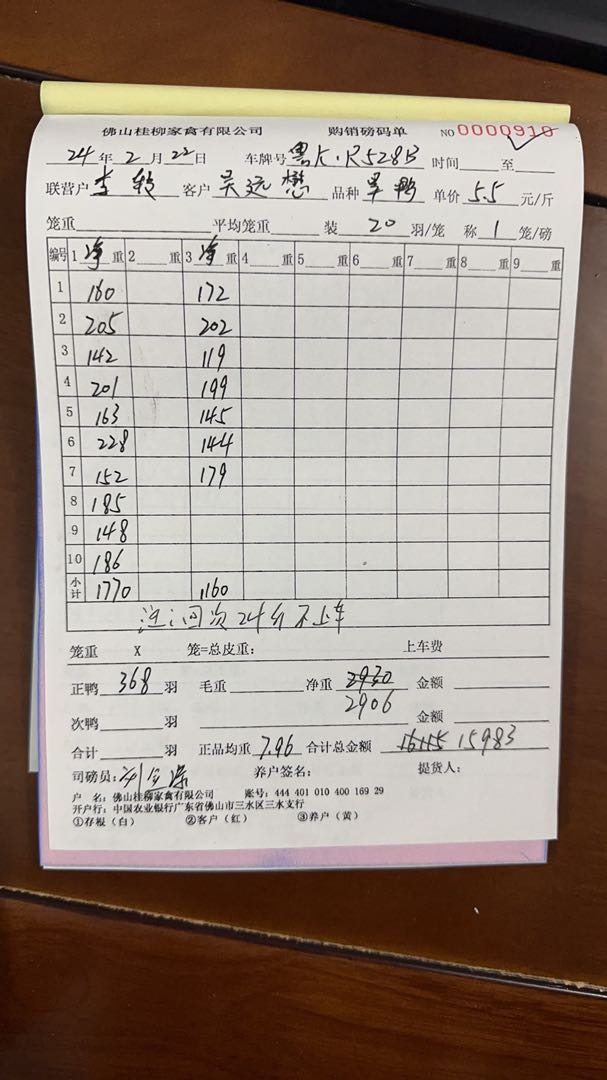 佛山桂柳家禽有限公司 购销磅码单 NO 0000910
24年2月22日 车牌号 粤K·R528B 时间 至
联营户 李 客户 吴远懋 品种 旱鸭 单价 5.5 元/斤
笼重 平均笼重 装 20 羽/笼 称 1 笼/磅
编号 1 净重 2 重 3 净重 4 重 5 重 6 重 7 重 8 重 9 重
1 160 172
2 205 202
3 142 119
4 201 199
5 163 145
6 228 144
7 152 179
8 185
9 148
10 186
小计 1770 1160
注:回次24斤不上车
笼重 X 笼=总皮重: 上车费
正鸭 368 羽 毛重 净重 2930 金额
2906
次鸭 羽 金额
合计 羽 正品均重 7.96 合计总金额 16115 15983
司磅员: 养户签名: 提货人:
户 名:佛山桂柳家禽有限公司 账号:444 401 010 400 169 29
开户行:中国农业银行广东省佛山市三水区三水支行
①存根(白) ②客户(红) ③养户(黄)